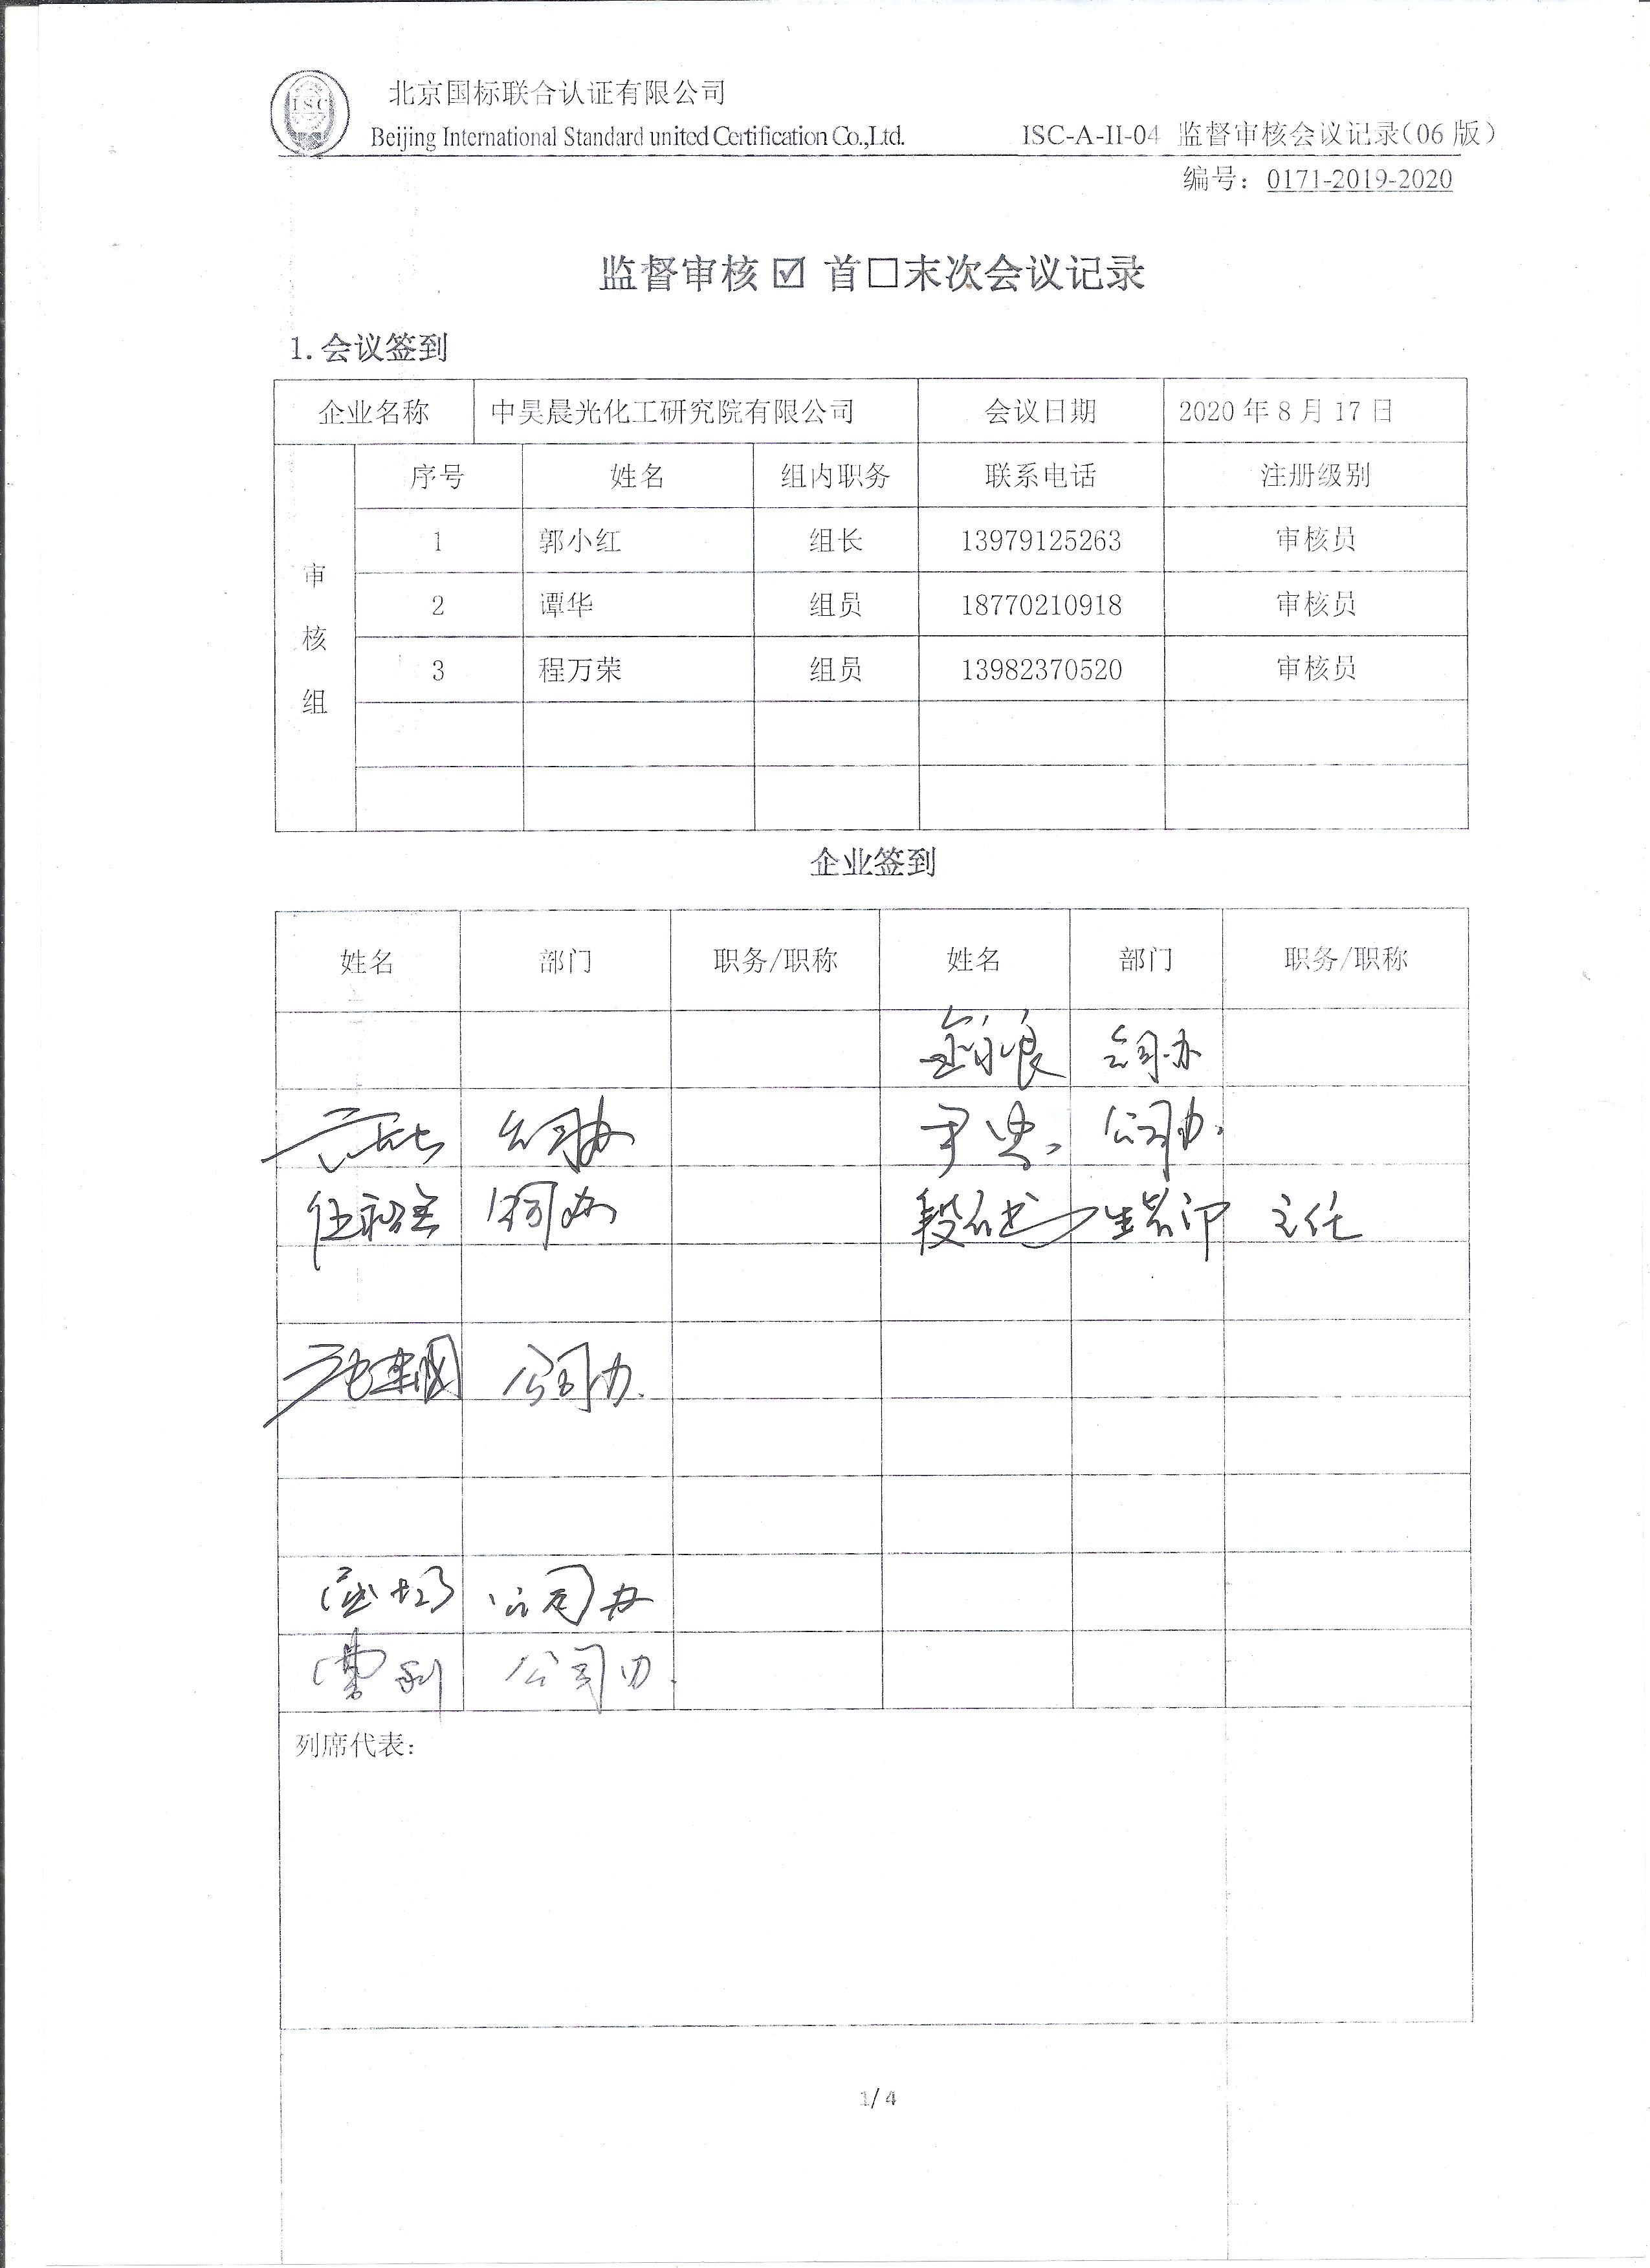 ISC
北京国标联合认证有限公司
Beijing International Standard united Certification Co.,Ltd.
ISC-A-II-04 监督审核会议记录(06 版)
编号：0171-2019-2020
监督审核 ☑ 首□末次会议记录
1.会议签到
企业名称 中昊晨光化工研究院有限公司 会议日期 2020 年 8 月 17 日
审核组
序号 姓名 组内职务 联系电话 注册级别
1 郭小红 组长 13979125263 审核员
2 谭华 组员 18770210918 审核员
3 程万荣 组员 13982370520 审核员
企业签到
姓名 部门 职务/职称 姓名 部门 职务/职称
公司办
公司办 公司办
公司办 主任
公司办
公司办
曹利 公司办
列席代表：
1/ 4